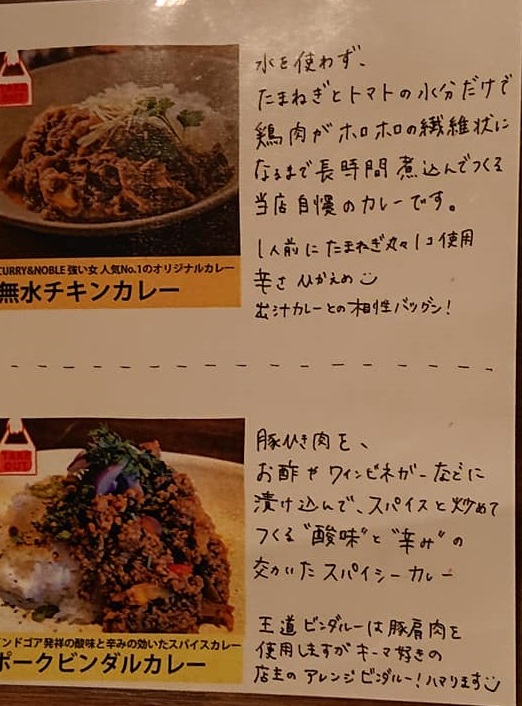 水を使わず、
たまねぎとトマトの水分だけで
鶏肉がホロホロの繊維状に
なるまで長時間煮込んでつくる
当店自慢のカレーです。
1人前にたまねぎ丸々1コ使用
辛さひかえめ
出汁カレーとの相性バツグン!
CURRY&NOBLE 強い女 人気No.1のオリジナルカレー
無水チキンカレー
TAKE
OUT
豚ひき肉を、
お酢やワインビネガーなどに
漬け込んで、スパイスと炒めて
つくる"酸味"と"辛み"の
効いたスパイシーカレー
王道ビンダルーは豚肩肉を
使用しますがキーマ好きの
店主のアレンジビンダルー!ハマります
インドゴア発祥の酸味と辛みの効いたスパイスカレー
ポークビンダルカレー